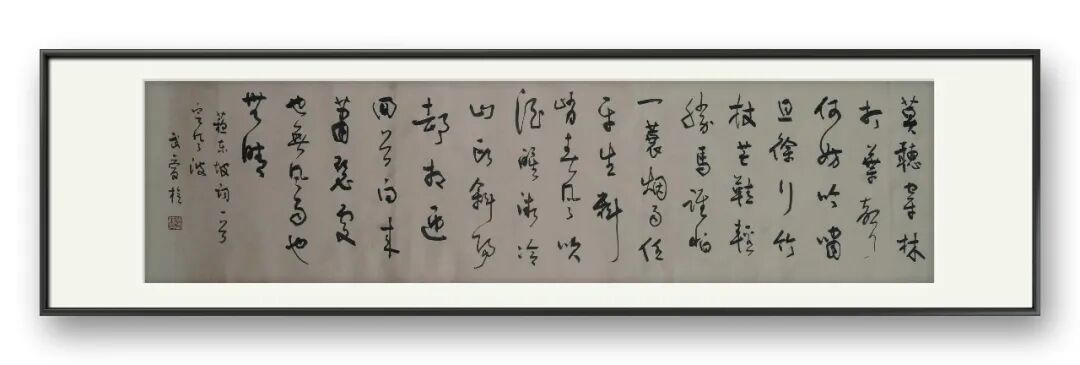 莫聽穿林
打葉聲
何妨吟嘯
且徐行竹
杖芒鞋輕
勝馬誰怕
一蓑烟雨任
平生料
峭春風吹
酒醒微冷
山頭斜照
却相迎
回首向來
蕭瑟處
也無風雨也
無晴
蘇東坡詞一首
定風波